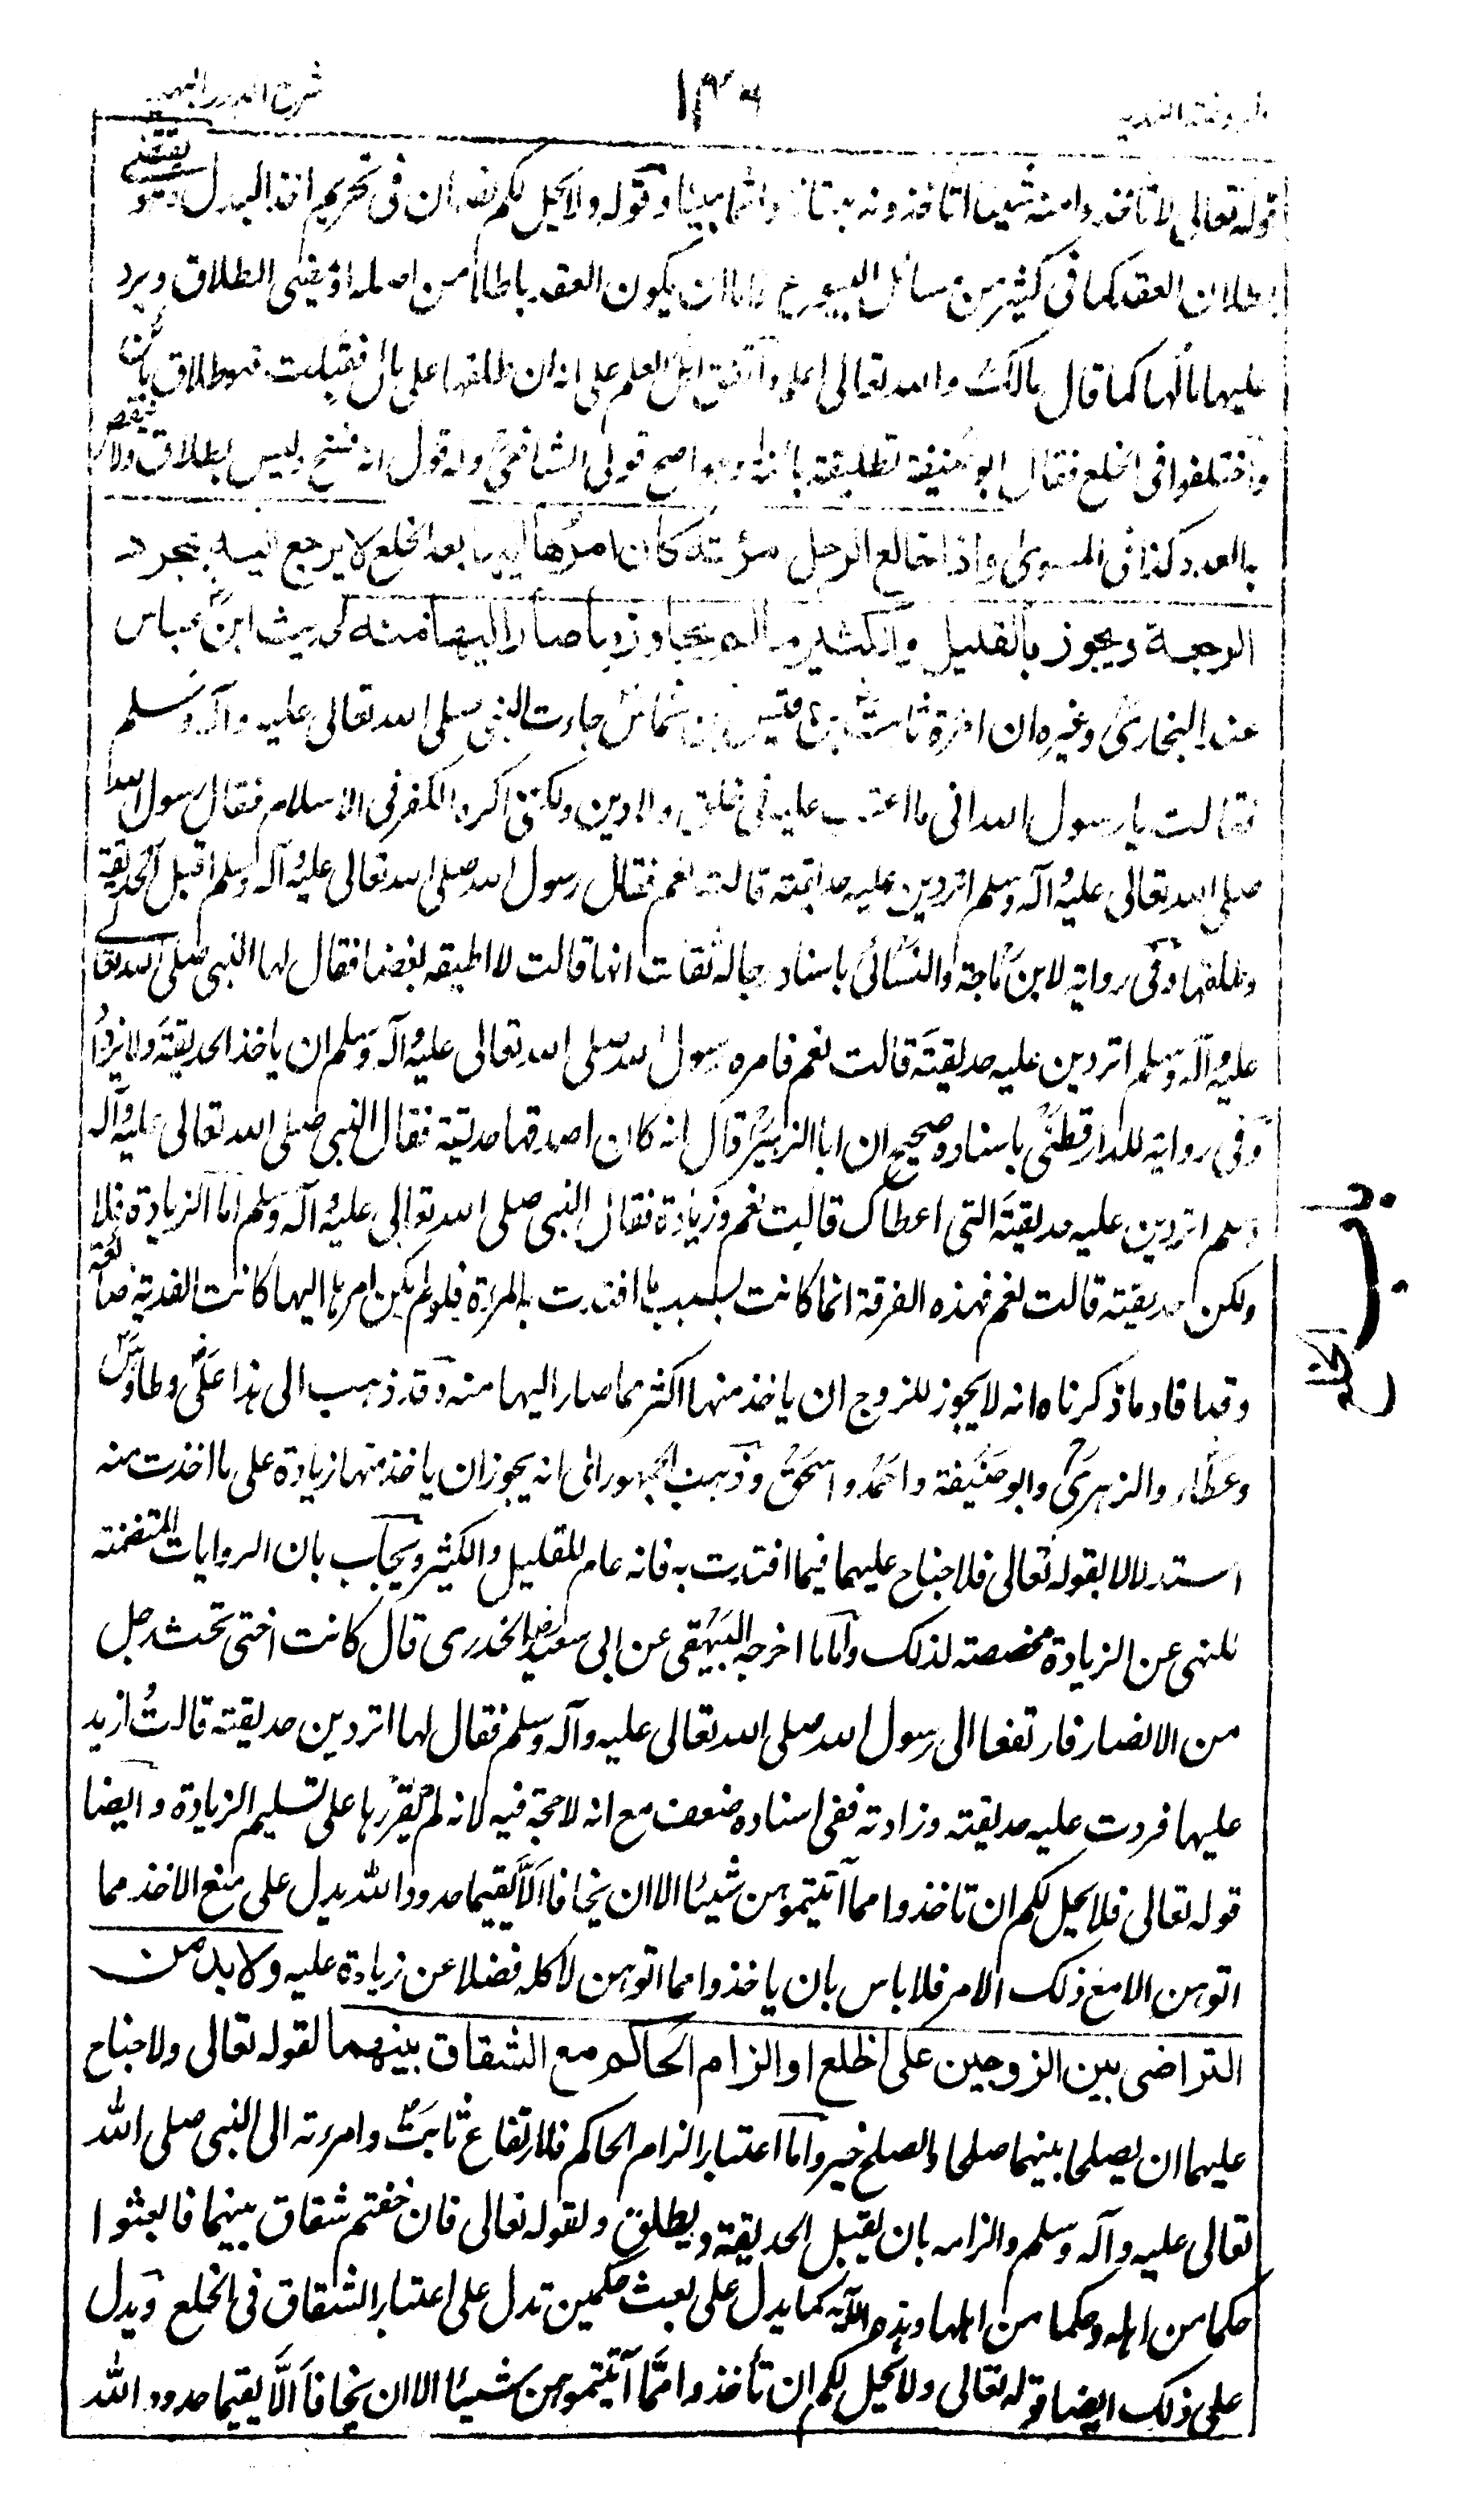 الروضة الندية ١٣٦ شرح الدرر البهية
قوله تعالى لا تأخذوا منه شيئا أتأخذونه بهتانا واثما مبينا وقوله ولا يحل لكم نصان في تحريم اخذ البدل وهو يقتضي
بطلان العقد كما في كثير من مسائل البيوع فاما ان يكون العقد باطلا من اصله او يقى الطلاق ويرد
عليها مالها كما قال مالك والله تعالى اعلم واتفق اهل العلم على انه ان طلقها على مال فقبلت فهو طلاق بائن
واختلفوا في الخلع فقال ابو حنيفة تطليقة بائنة وهو اصح قولي الشافعي وله قول انه فسخ وليس بطلاق ولا ينقص
بالعدد كذا في المسوى واذا خالع الرجل امرأته كان امرها اليها بعد الخلع لا يرجع اليه بمجرد
الرجعة ويجوز بالقليل والكثير ما لم يجاوز ما صار اليها منه لحديث ابن عباس
عند البخاري وغيره ان امرءة ثابت بن قيس بن شماس جاءت النبي صلى الله تعالى عليه وآله وسلم
فقالت يا رسول الله اني ما اعتب عليه في خلق ولا دين ولكني اكره الكفر في الاسلام فقال رسول الله
صلى الله تعالى عليه وآله وسلم اتردين عليه حديقته قالت نعم فقال رسول الله صلى الله تعالى عليه وآله وسلم اقبل الحديقة
وطلقها وفي رواية لابن ماجة والنسائي باسناد رجاله ثقات انها قالت لا اطيقه بغضا فقال لها النبي صلى الله تعالى
عليه وآله وسلم اتردين عليه حديقته قالت نعم فامره رسول الله صلى الله تعالى عليه وآله وسلم ان ياخذ الحديقة ولا يزداد
وفي رواية للدارقطني باسناده صحيح ان ابا الزبير قال انه كان اصدقها حديقة فقال النبي صلى الله تعالى عليه وآله
وسلم اتردين عليه حديقته التي اعطاك قالت نعم وزيادة فقال النبي صلى الله تعالى عليه وآله وسلم اما الزيادة فلا
ولكن حديقته قالت نعم فهذه الفرقة انما كانت بسبب ما افتدت به المرءة فلو لم يكن امرها اليها كانت الفدية ضائعة
وقد افاد ما ذكرناه انه لا يجوز للزوج ان ياخذ منها اكثر مما صار اليها منه وقد ذهب الى هذا علي وطاؤس
وعطاء والزهري وابو حنيفة واحمد واسحق وذهب الجمهور الى انه يجوز ان ياخذ منها زيادة على ما اخذت منه
استدلالا بقوله تعالى فلا جناح عليهما فيما افتدت به فانه عام للقليل والكثير ويجاب بان الروايات المتضمنة
للنهي عن الزيادة مخصصة لذلك واما ما اخرجه البيهقي عن ابي سعيد الخدري قال كانت اختي تحت رجل
من الانصار فارتفعا الى رسول الله صلى الله تعالى عليه وآله وسلم فقال لها اتردين حديقته قالت ازيد
عليها فردت عليه حديقته وزادته ففي اسناده ضعف مع انه لا حجة فيه لانه لم يقررها على تسليم الزيادة وايضا
قوله تعالى فلا يحل لكم ان تاخذوا مما آتيتموهن شيئا الا ان يخافا الا يقيما حدود الله يدل على منع الاخذ مما
اتوهن الا مع ذلك الامر فلا باس بان ياخذوا مما اتوهن لا كله فضلا عن زيادة عليه ولا بد من
التراضي بين الزوجين على الخلع او الزام الحاكم مع الشقاق بينهما لقوله تعالى ولا جناح
عليهما ان يصلحا بينهما صلحا والصلح خير واما اعتبار الزام الحاكم فلارتفاع ثابت وامرءته الى النبي صلى الله
تعالى عليه وآله وسلم والزامه بان يقبل الحديقة ويطلق ولقوله تعالى فان خفتم شقاق بينهما فابعثوا
حكما من اهله وحكما من اهلها وهذه الآية كما يدل على بعث حكمين تدل على اعتبار الشقاق في الخلع ويدل
على ذلك ايضا قوله تعالى ولا يحل لكم ان تأخذوا مما آتيتموهن شيئا الا ان يخافا الا يقيما حدود الله